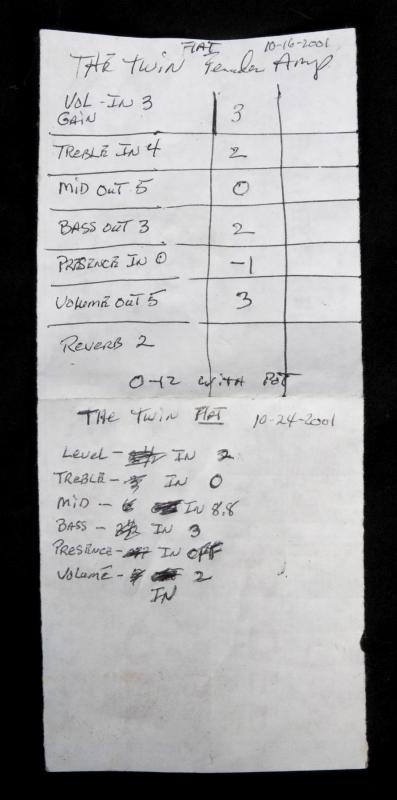 FLAT 10-16-2001
THE TWIN Fender Amp
VOL - IN 3
GAIN 3
TREBLE IN 4 2
MID OUT 5 0
BASS OUT 3 2
PRESENCE IN 0 -1
VOLUME OUT 5 3
REVERB 2
0-12 WITH POT
THE TWIN FLAT 10-24-2001
LEVEL - IN 2
TREBLE - IN 0
MID - IN 8.8
BASS - IN 3
PRESENCE - IN OFF
VOLUME - 2
IN